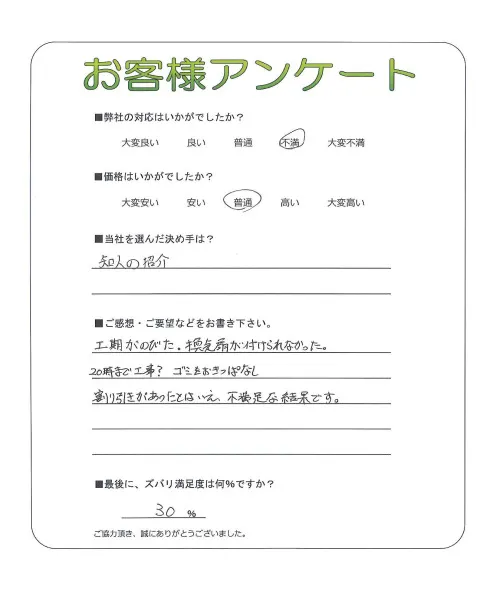 お客様アンケート
■弊社の対応はいかがでしたか？
大変良い 良い 普通 不満 大変不満
■価格はいかがでしたか？
大変安い 安い 普通 高い 大変高い
■当社を選んだ決め手は？
知人の紹介
■ご感想・ご要望などをお書き下さい。
工期がのびた．換気扇が付けられなかった。
20時まで工事？ ゴミをおきっぱなし
割り引きがあったとはいえ、不満足な結果です。
■最後に、ズバリ満足度は何%ですか？
30 %
ご協力頂き、誠にありがとうございました。